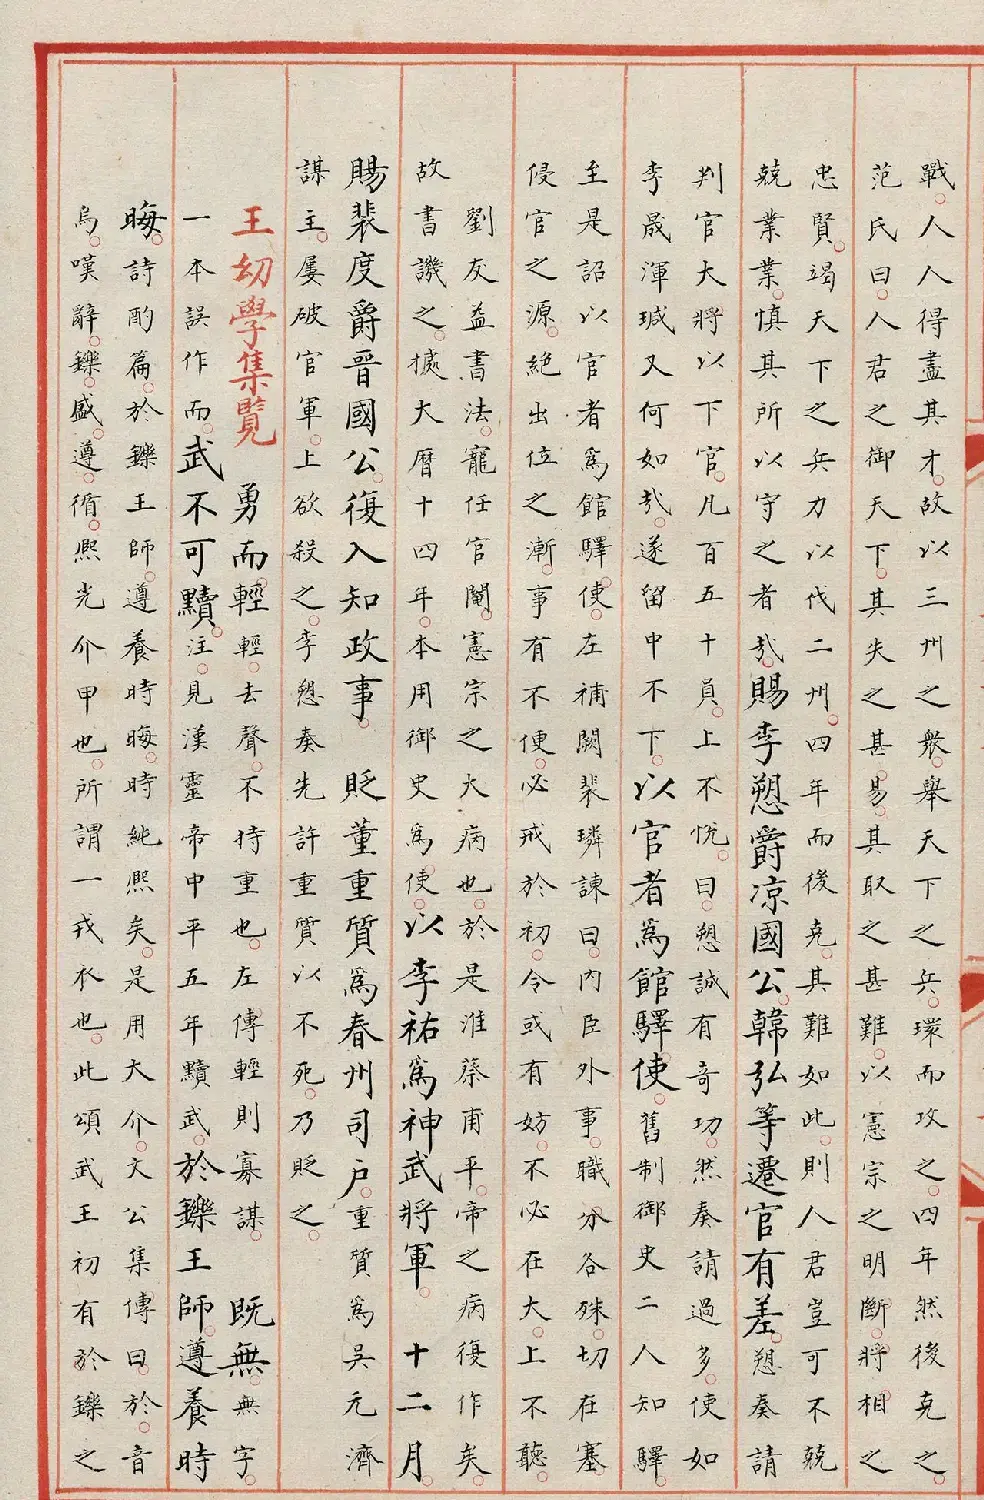 戰。人人得盡其才。故以三州之衆。舉天下之兵。環而攻之。四年然後克之。
范氏曰。人君之御天下。其失之甚易。其取之甚難。以憲宗之明斷。將相之
忠賢。竭天下之兵力以伐二州。四年而後克。其難如此。則人君豈可不兢
兢業業。慎其所以守之者哉。賜李愬爵凉國公。韓弘等遷官有差。愬奏請
判官大將以下官。凡百五十員。上不悅。曰。愬誠有奇功。然奏請過多。使如
李晟渾瑊又何如哉。遂留中不下。以宦者爲館驛使。舊制御史二人知驛。
至是詔以宦者爲館驛使。左補闕裴璘諫曰。內臣外事。職分各殊。切在塞
侵官之源。絶出位之漸。事有不便。必戒於初。令或有妨。不必在大。上不聽。
劉友益書法。寵任宦閹。憲宗之大病也。於是淮蔡甫平。帝之病復作矣。
故書譏之。㨿大曆十四年。本用御史爲使。以李祐爲神武將軍。 十二月。
賜裴度爵晉國公。復入知政事。 貶董重質爲春州司戶。重質爲吳元濟
謀主。屢破官軍。上欲殺之。李愬奏先許重質以不死。乃貶之。
王幼學集覽 勇而輕。輕。去聲。不持重也。左傳輕則寡謀。 旣無。無字。
一本誤作而。武不可黷。注。見漢靈帝中平五年黷武。於鑠王師。遵養時
晦。詩酌篇。於鑠王師。遵養時晦。時純熙矣。是用大介。文公集傳曰。於。音
烏。嘆辭。鑠。盛。遵。循。熙光介甲也。所謂一戎衣也。此頌武王初有於鑠之